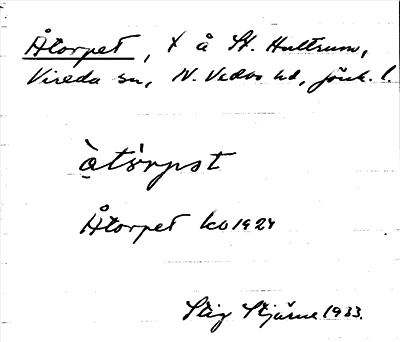 Åtorpet, t å St. Hultrum,
Vireda sn, N. Vedbo hd, Jönk. l.
Åtorpet ko 1924
Stig Stjärne 1933.